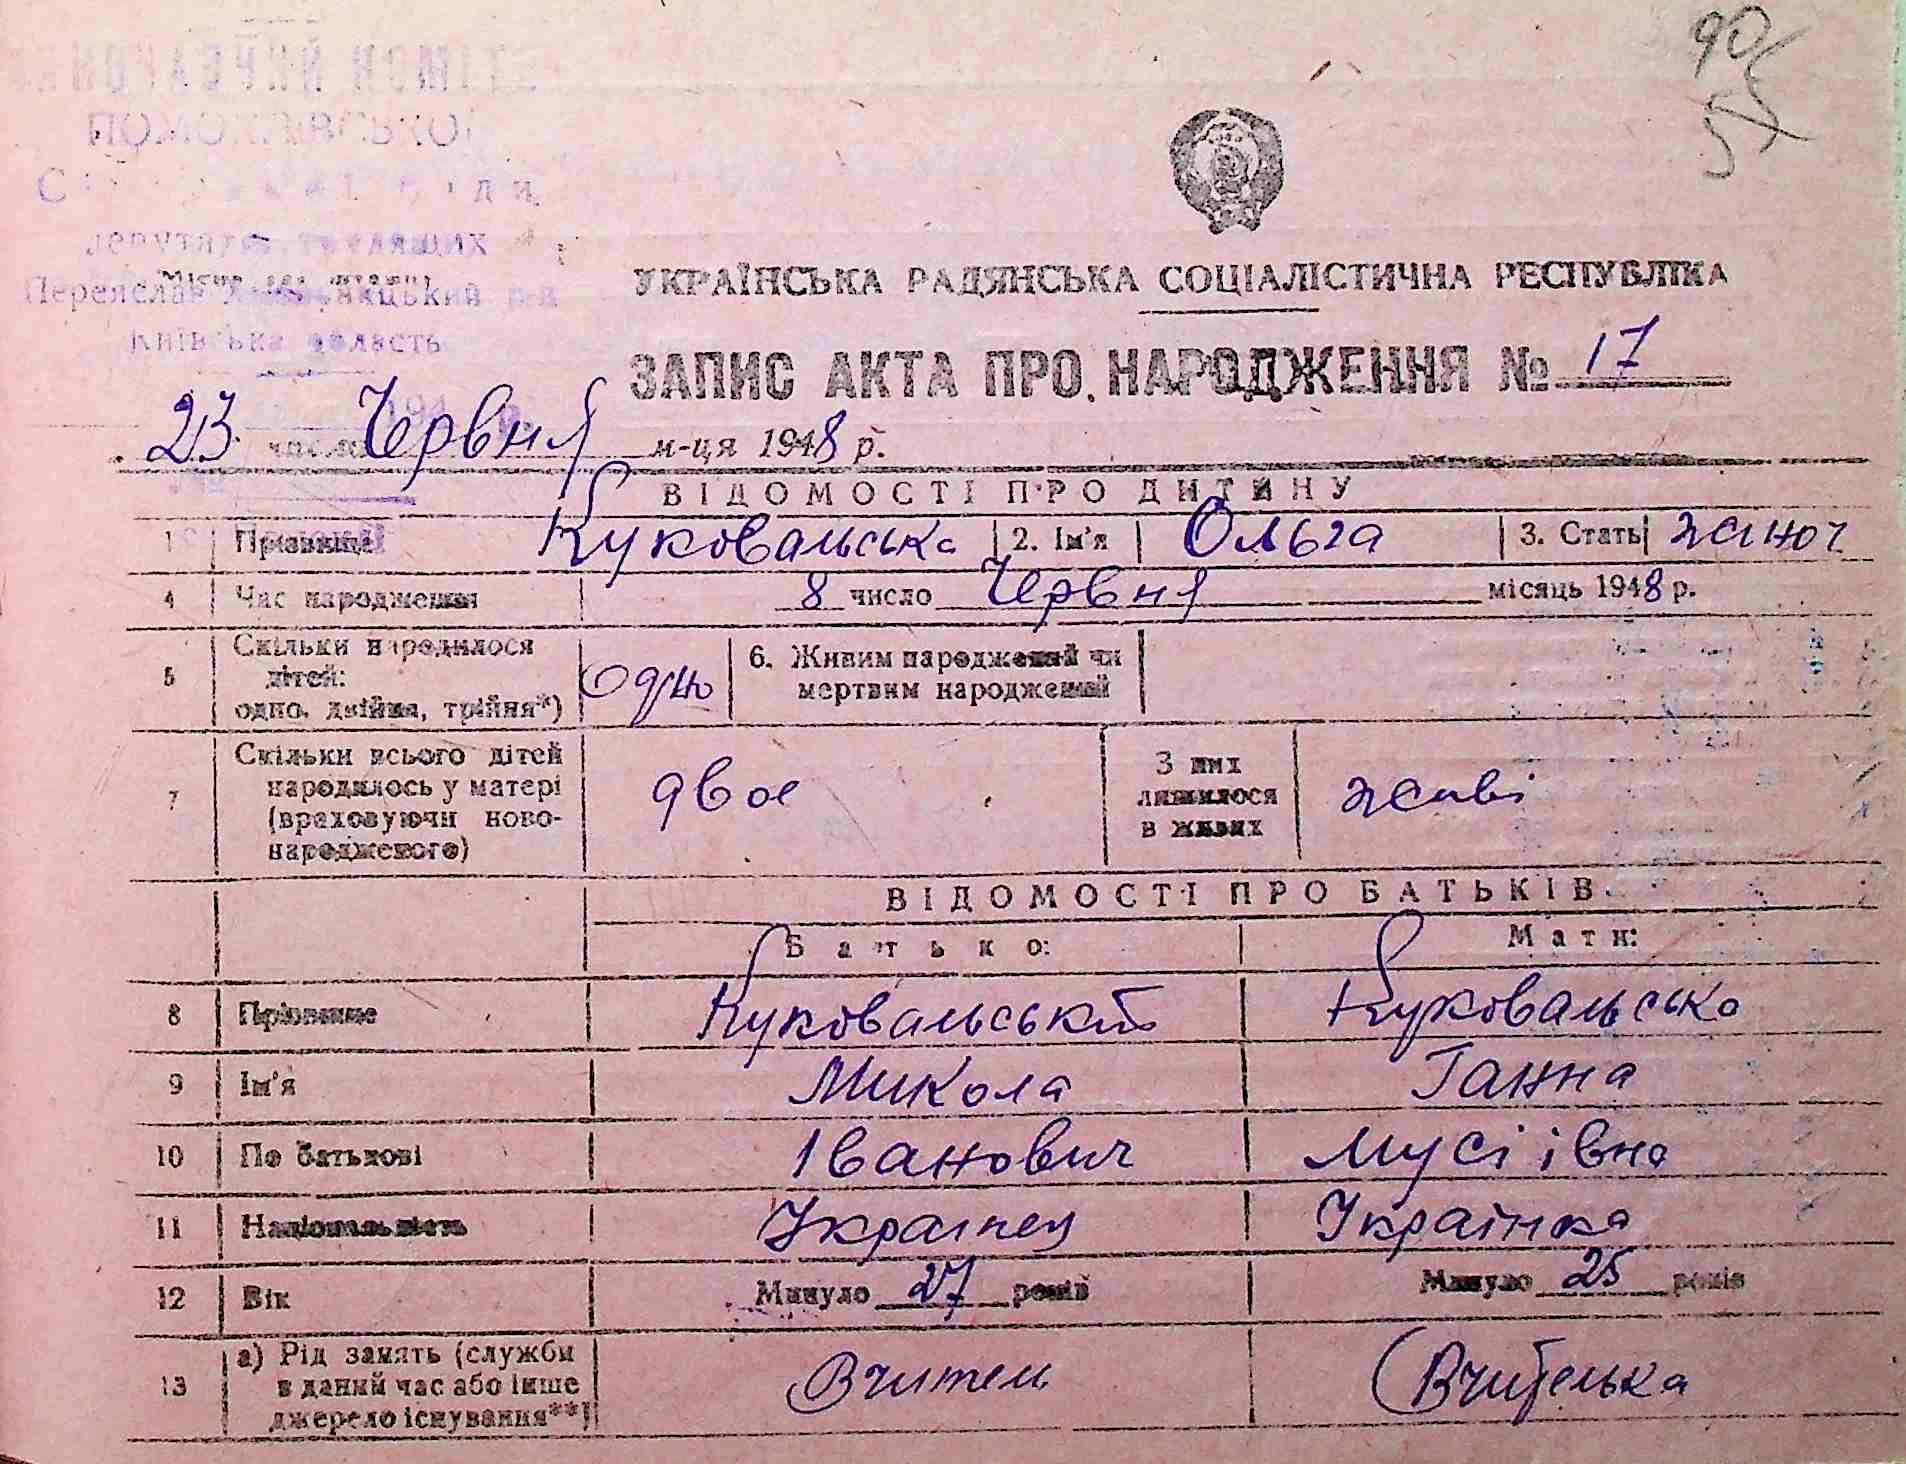 90
5
депутатів трудящих
Переяслав Хмельницький р-н
Київська область
УКРАЇНСЬКА РАДЯНСЬКА СОЦІАЛІСТИЧНА РЕСПУБЛІКА
ЗАПИС АКТА ПРО НАРОДЖЕННЯ № 17
23 число Червня м-ця 1948 р.
ВІДОМОСТІ ПРО ДИТИНУ
1 Прізвище Куковальська 2. Ім'я Ольга 3. Стать жіноч
4 Час народження 8 число Червня місяць 1948 р.
5 Скільки народилося дітей: одно, двійня, трійня*) Одно 6. Живим народжений чи мертвим народжений
7 Скільки всього дітей народилось у матері (враховуючи ново-народженого) двоє З них лишилося в живих живі
ВІДОМОСТІ ПРО БАТЬКІВ
Батько: Мати:
8 Прізвище Куковальський Куковальська
9 Ім'я Микола Ганна
10 По батькові Іванович Мусіівна
11 Національність Українец Українка
12 Вік Минуло 27 років Минуло 25 років
13 а) Рід занять (служби в даний час або інше джерело існування**) Вчитель Вчителька